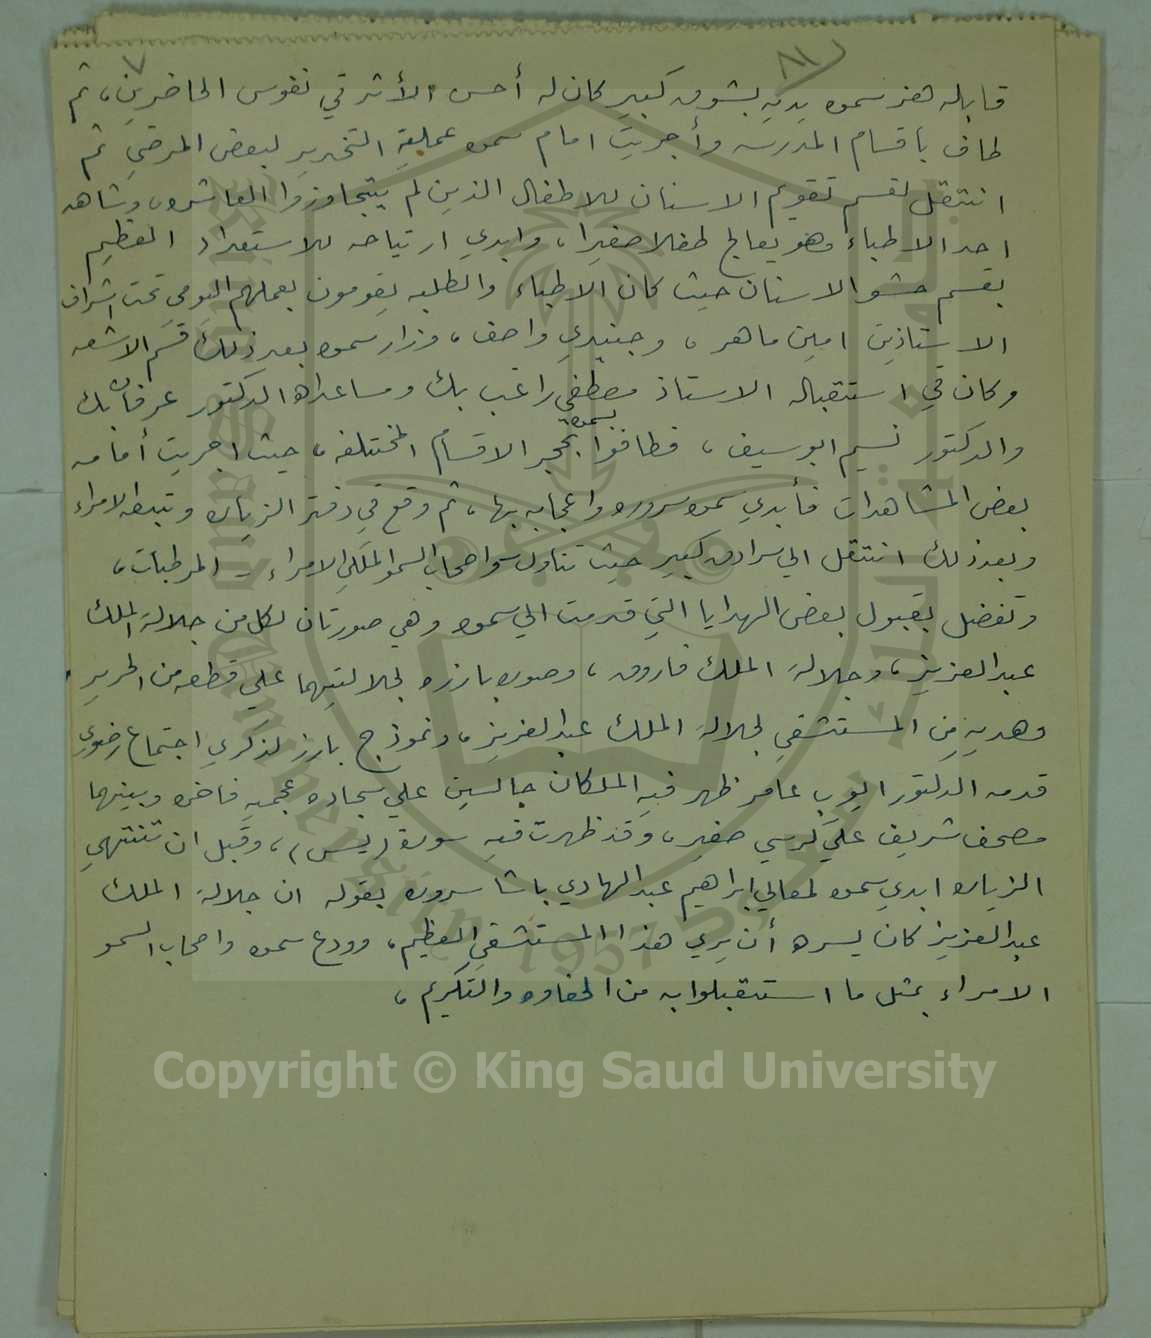 ٨١ ٧
قابله هز سموه يديه بشوق كبير كان له أحسن الأثر في نفوس الحاضرين، ثم
طاف بأقسام المدرسه وأجريت امام سموه عملية التخدير لبعض المرضي ثم
انتقل لقسم تقويم الاسنان للاطفال الذين لم يتجاوزوا العاشره، وشاهد
احد الاطباء وهو يعالج طفلا صغيرا، وابدي ارتياحه للاستعداد العظيم
بقسم حشو الاسنان حيث كان الاطباء والطلبه يقومون بعملهم اليومي تحت اشراف
الاستاذين امين ماهر، وجنيدي واصف، وزار سموه بعد ذلك قسم الاشعه
وكان في استقباله الاستاذ مصطفي راغب بك ومساعداه الدكتور عرفان بك
والدكتور نسيم ابوسيف، فطافوا بسموه بحجر الاقسام المختلفه، حيث اجريت أمامه
بعض المشاهدات فأبدي سموه سروره واعجابه بها، ثم وقع في دفتر الزياره وتبعه الامراء
وبعد ذلك انتقل الي سرادق كبير حيث تناول سمو اصحاب السمو الملكي الامراء - المرطبات،
وتفضل بقبول بعض الهدايا التي قدمت الي سموه وهي صورتان لكل من جلالة الملك
عبدالعزيز، وجلالة الملك فاروق، وصوره بارزه لجلالتيهما علي قطعه من الحرير
وهديه من المستشفي لجلالة الملك عبدالعزيز، ونموذج بارز لذكري اجتماع رضوي
قدمه الدكتور ايوب عامر ظهر فيه الملكان جالسين علي سجاده عجميه فاخره وبينهما
مصحف شريف علي كرسي صغير، وقد ظهرت فيه سورة (يس)، وقبل ان تنتهي
الزياره ابدي سموه لمعالي ابراهيم عبدالهادي باشا سروره بقوله ان جلالة الملك
عبدالعزيز كان يسره أن يري هذا المستشفي العظيم، وودع سموه واصحاب السمو
الامراء بمثل ما استقبلوا به من الحفاوه والتكريم،
Copyright © King Saud University
جامعة الملك سعود
King Saud University
1957